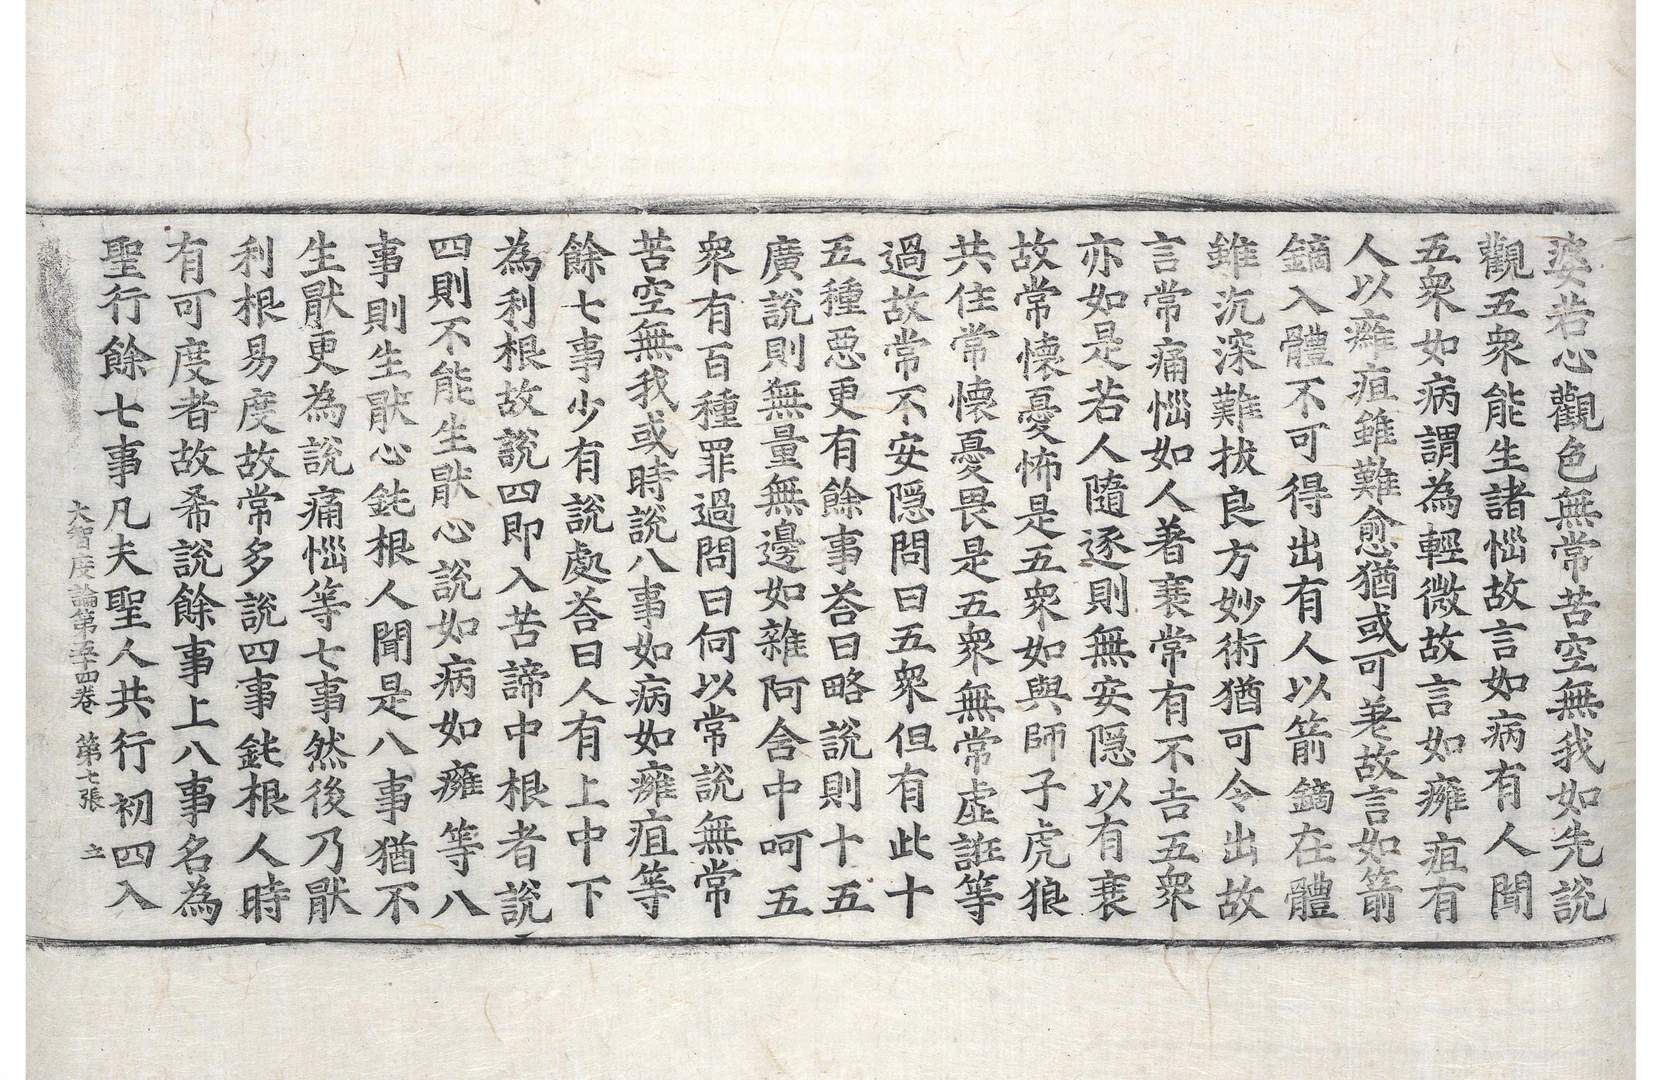 婆若心觀色無常苦空無我如先說
觀五衆能生諸惱故言如病有人聞
五衆如病謂為輕微故言如癰疽有
人以癰疽雖難愈猶或可差故言如箭
鏑入體不可得出有人以箭鏑在體
雖沉深難拔良方妙術猶可令出故
言常痛惱如人著衰常有不吉五衆
亦如是若人隨逐則無安隱以有衰
故常懷憂怖是五衆如與師子虎狼
共住常懷憂畏是五衆無常虛誑等
過故常不安隱問曰五衆但有此十
五種惡更有餘事荅曰略說則十五
廣說則無量無邊如雜阿含中呵五
衆有百種罪過問曰何以常說無常
苦空無我或時說八事如病如癰疽等
餘七事少有說處荅曰人有上中下
為利根故說四即入苦諦中根者說
四則不能生猒心說如病如癰等八
事則生猒心鈍根人聞是八事猶不
生猒更為說痛惱等七事然後乃猒
利根易度故常多說四事鈍根人時
有可度者故希說餘事上八事名為
聖行餘七事凡夫聖人共行初四入
大智度論第五十四卷 第七張 立